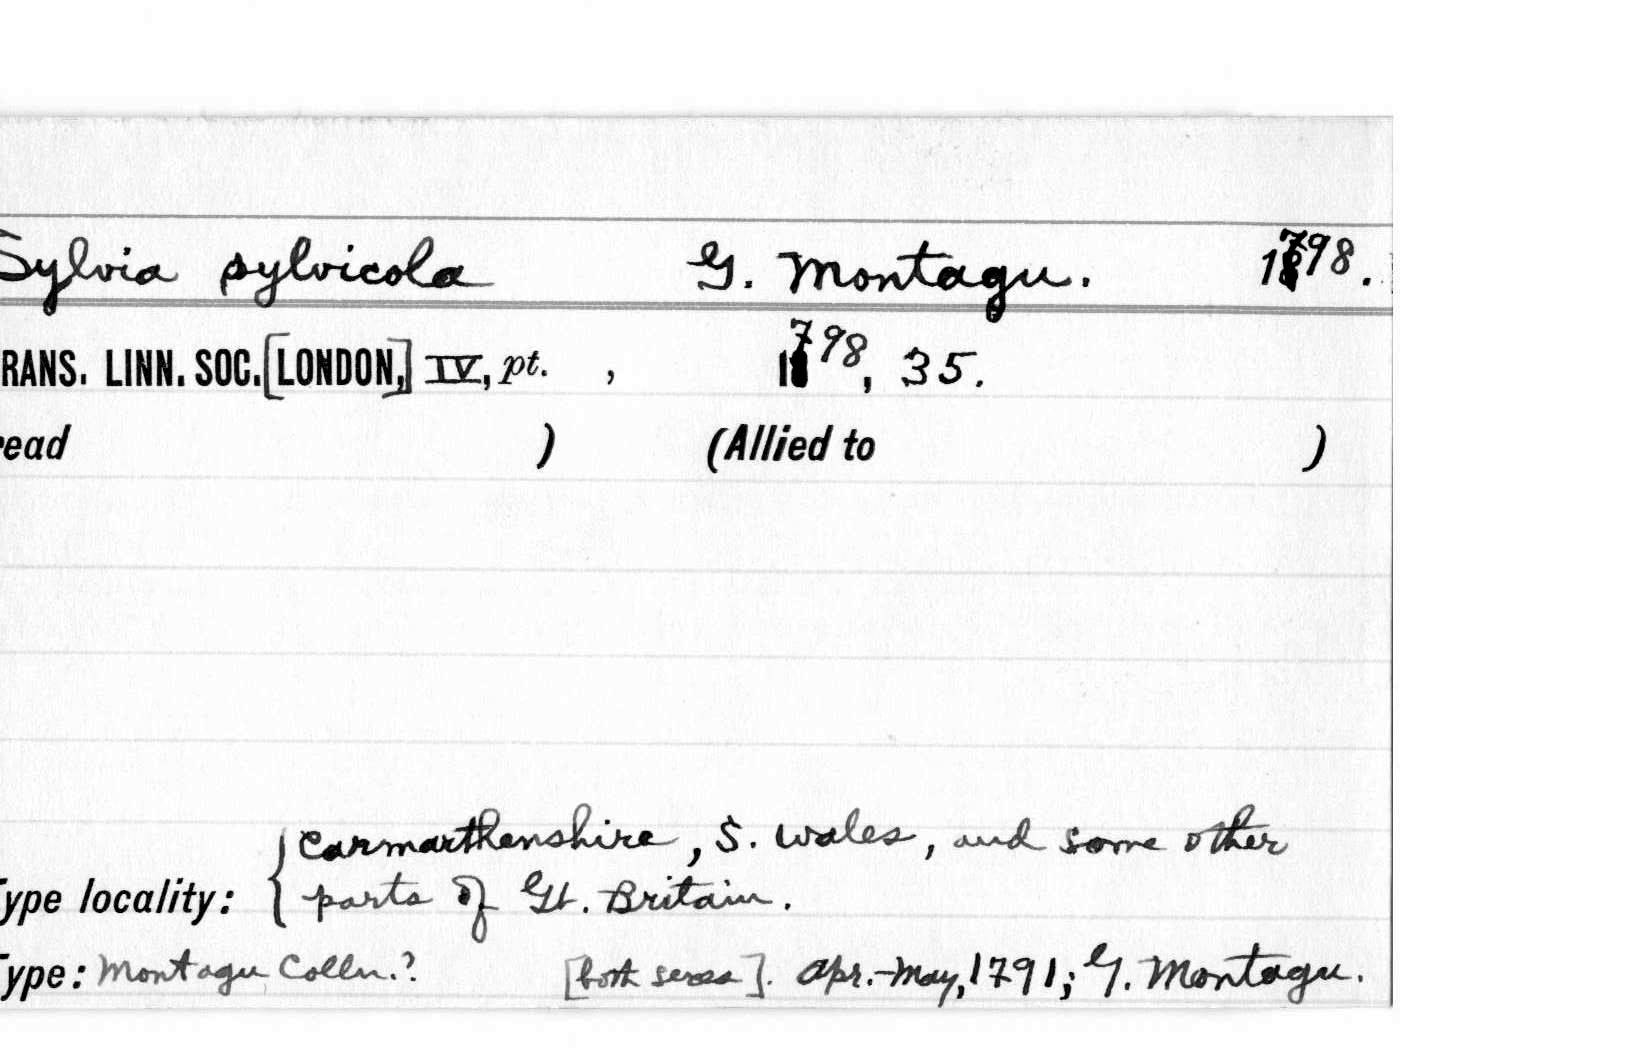 Sylvia sylvicola G. Montagu. 1798.
RANS. LINN. SOC. [LONDON,] IV, pt. , 1798, 35.
read ) (Allied to )
Carmarthenshire, S. Wales, and some other
Type locality: { parts of Gt. Britain.
Type: Montagu Colln.? [both sexes]. Apr.-May, 1791; G. Montagu.